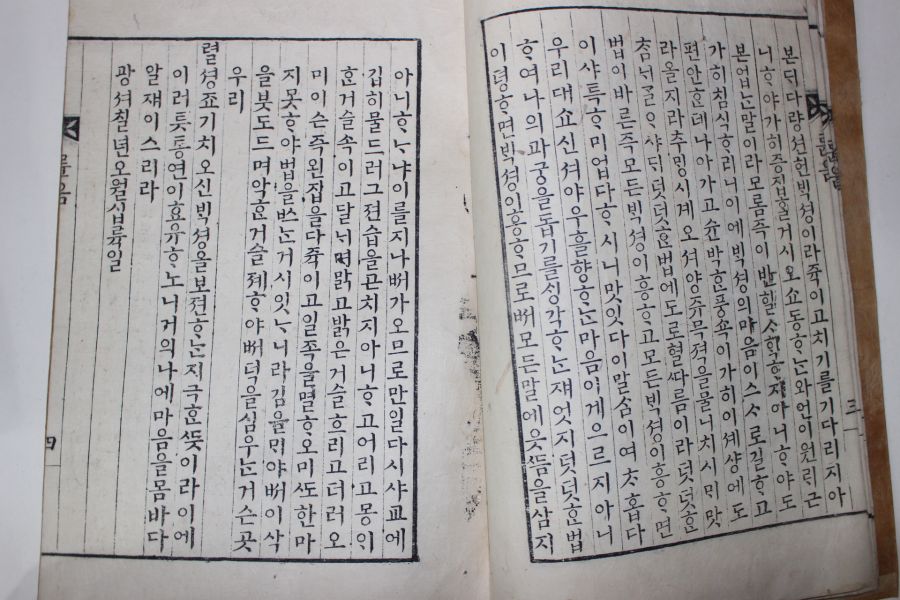 본ᄃᆡ다량션ᄒᆞᆫᄇᆡᆨ셩이라쥭이고치기를기다리지아
니ᄒᆞ야가히증졈홀거시오쇼동ᄒᆞᄂᆞᆫ와언이원ᄅᆡ근
본업ᄂᆞᆫ말이라모롬즉이반 지아니ᄒᆞ야도
가히침식ᄒᆞ리니이에ᄇᆡᆨ셩의마음이스ᄉᆞ로길ᄒᆞ고
편안ᄒᆞᆫ데나아가고슌박ᄒᆞᆫ풍쇽이가히이셰샹에도
라올지라츄밍시계오셔양쥬묵젹을물니치시ᄆᆡ맛
ᄎᆞᆷᄂᆡᄀᆞᆯᄋᆞ샤ᄃᆡ덧덧ᄒᆞᆫ법에도로혈ᄯᅡ름이라덧덧ᄒᆞᆫ
법이바른즉모든ᄇᆡᆨ셩이흥ᄒᆞ고모든ᄇᆡᆨ셩이흥ᄒᆞ면
이샤특ᄒᆞ미업다ᄒᆞ시니맛잇다이말ᄉᆞᆷ이여ᄎᆞ홉다
우리대쇼신셔야우흘향ᄒᆞᄂᆞᆫ마음이게으르지아니
ᄒᆞ여나의과궁을돕기를ᄉᆡᆼ각ᄒᆞᄂᆞᆫ쟤엇지덧덧ᄒᆞᆫ법
이평ᄒᆞ면ᄇᆡᆨ셩이흥ᄒᆞ므로ᄡᅥ모든말에읏ᄯᅳᆷ을삼지
륜음
三
아니ᄒᆞᄂᆞ냐이를지나ᄡᅥ가오므로만일다시샤교에
깁히물드러그젼습을곤치지아니ᄒᆞ고어리고몽ᄋᆡ
ᄒᆞᆫ거슬속이고달ᄂᆡ며맑고밝은거슬흐리고더러오
미이슨즉왼집을다쥭이고일족을멸ᄒᆞ오미ᄯᅩ한마
지못ᄒᆞ야법을쓰ᄂᆞᆫ거시잇ᄂᆞ니라김을ᄆᆡ야ᄡᅥ이삭
을붓도드며악ᄒᆞᆫ거슬졔ᄒᆞ야ᄡᅥ덕을심우ᄂᆞᆫ거슨곳
우리
렬셩죠기치오신ᄇᆡᆨ셩을보젼ᄒᆞᄂᆞᆫ지극ᄒᆞᆫᄯᅳᆺ이라이에
이러틋통연이효유ᄒᆞ노니거의나에마음을몸바다
알쟤이스리라
광셔칠년오월십륙일
륜음
四